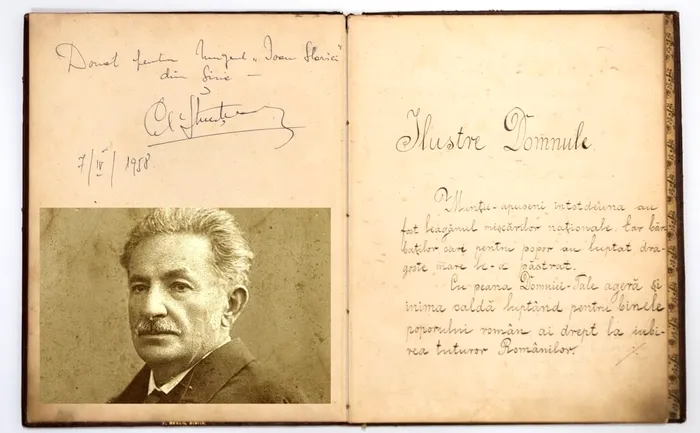 Donat pentru muzeul „Ioan Slavici"
din Șiria —
7/IV/1958
Ilustre Domnule.
Munții-apuseni întotdéuna au
fost leagănul mișcărilor naționale. Iar băr-
baților care pentru popor au luptat dra-
goste mare le-a păstrat.
Cu peana Domniei-Tale ageră și
inima caldă luptând pentru binele
poporului român ai drept la iubi-
rea tuturor Românilor.